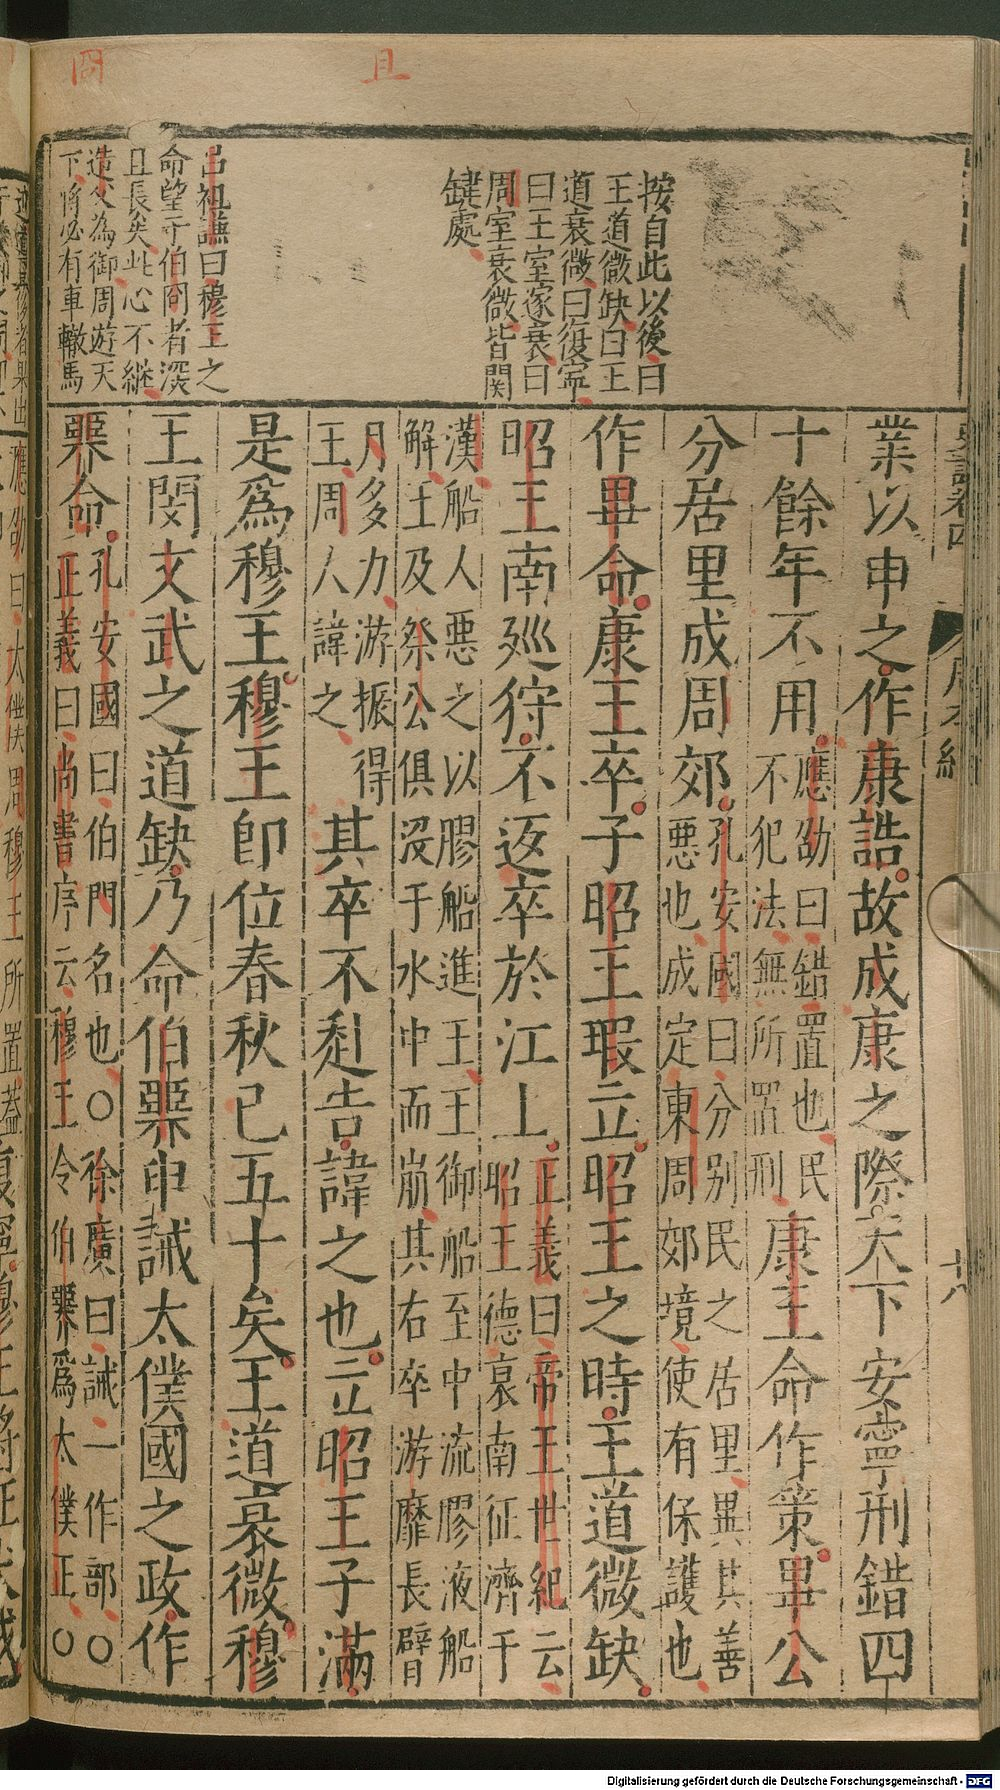 囧
且
按自此以後曰
王道微缺曰王
道衰微曰復寧
曰王室遂衰曰
周室衰微皆関
鍵處
呂祖謙曰穆王之
命望于伯冏者深
且長矣此心不継
造父為御周遊天
下將必有車轍馬
史記卷四
周本紀
十八
業以申之作康誥故成康之際天下安寧刑錯四
十餘年不用
應劭曰錯置也民
不犯法無所置刑
康王命作策畢公
分居里成周郊
孔安國曰分別民之居里異其善
惡也成定東周郊境使有保護也
作畢命康王卒子昭王瑕立昭王之時王道微缺
昭王南廵狩不返卒於江上
正義曰帝王世紀云
昭王德衰南征濟于
漢船人惡之以膠船進王王御船至中流膠液船
解王及祭公俱沒于水中而崩其右卒游靡長臂
月多力游振得
王周人諱之
其卒不赴告諱之也立昭王子滿
是爲穆王穆王即位春秋已五十矣王道衰微穆
王閔文武之道缺乃命伯臩申誡太僕國之政作
臩命
孔安國曰伯冏名也○徐廣曰誡一作部○
正義曰尚書序云穆王令伯臩爲太僕正○
應劭曰太僕周穆王所置蓋
Digitalisierung gefördert durch die Deutsche Forschungsgemeinschaft - DFG